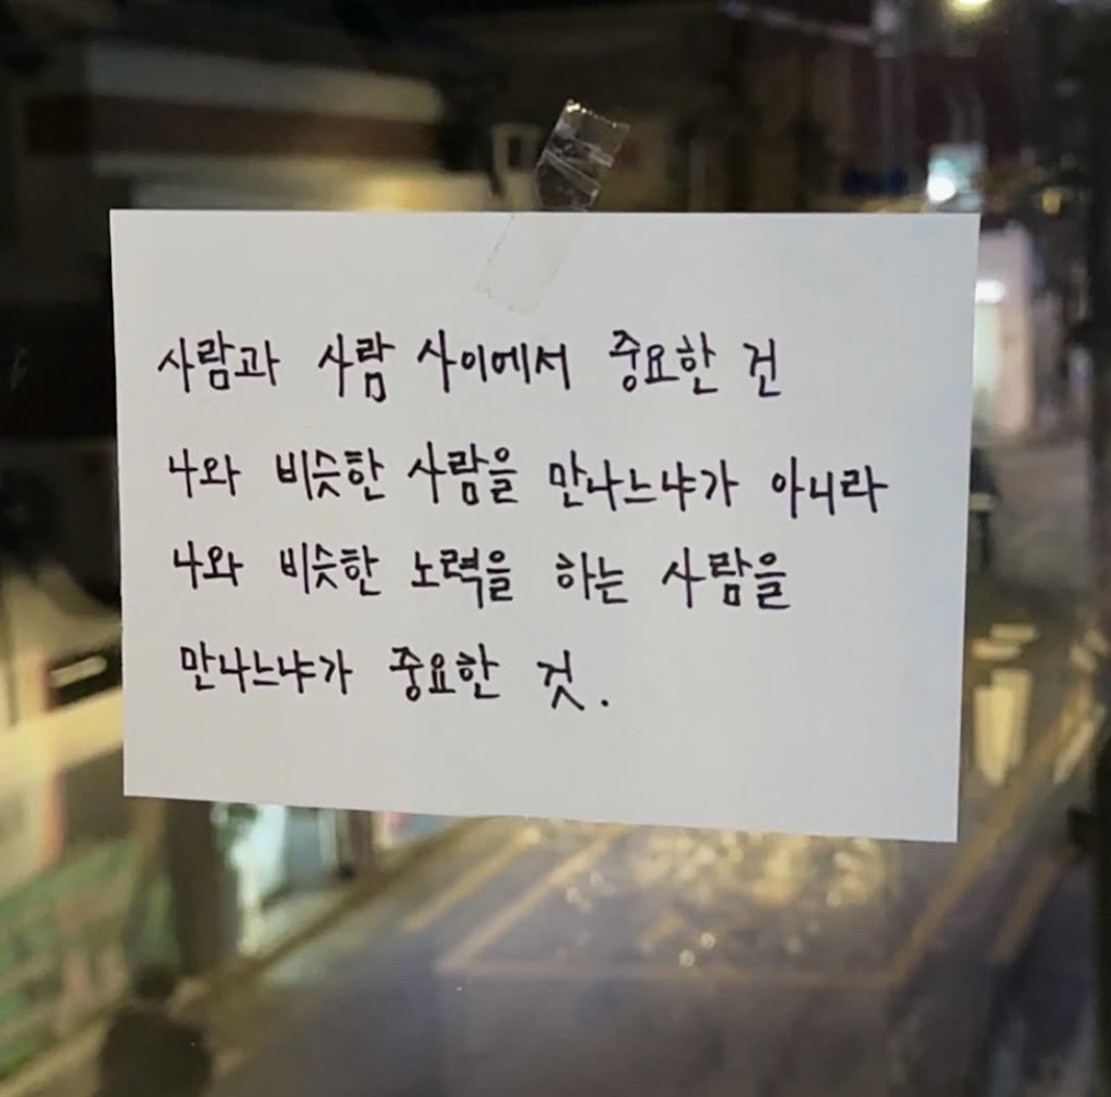 사람과 사람 사이에서 중요한 건
나와 비슷한 사람을 만나느냐가 아니라
나와 비슷한 노력을 하는 사람을
만나느냐가 중요한 것.